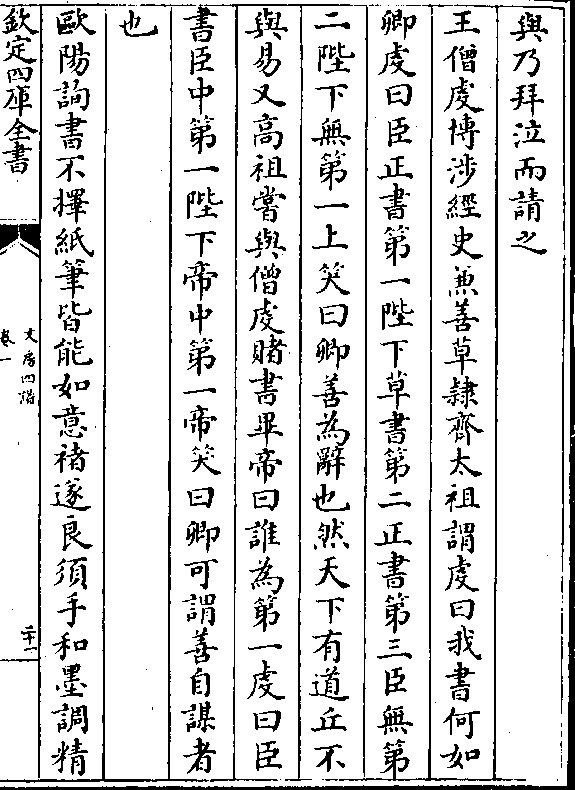 與乃拜泣而請之
王僧䖍博渉經史兼善草隷齊太祖謂䖍曰我書何如
卿䖍曰臣正書第一陛下草書第二正書第三臣無第
二陛下無第一上笑曰卿善為辭也然天下有道丘不
與易又高祖嘗與僧䖍賭書畢帝曰誰為第一䖍曰臣
書臣中第一陛下帝中第一帝笑曰卿可謂善自謀者
也
歐陽詢書不擇紙筆皆能如意禇遂良須手和墨調精
欽定四庫全書
文房四譜
卷一
二十一